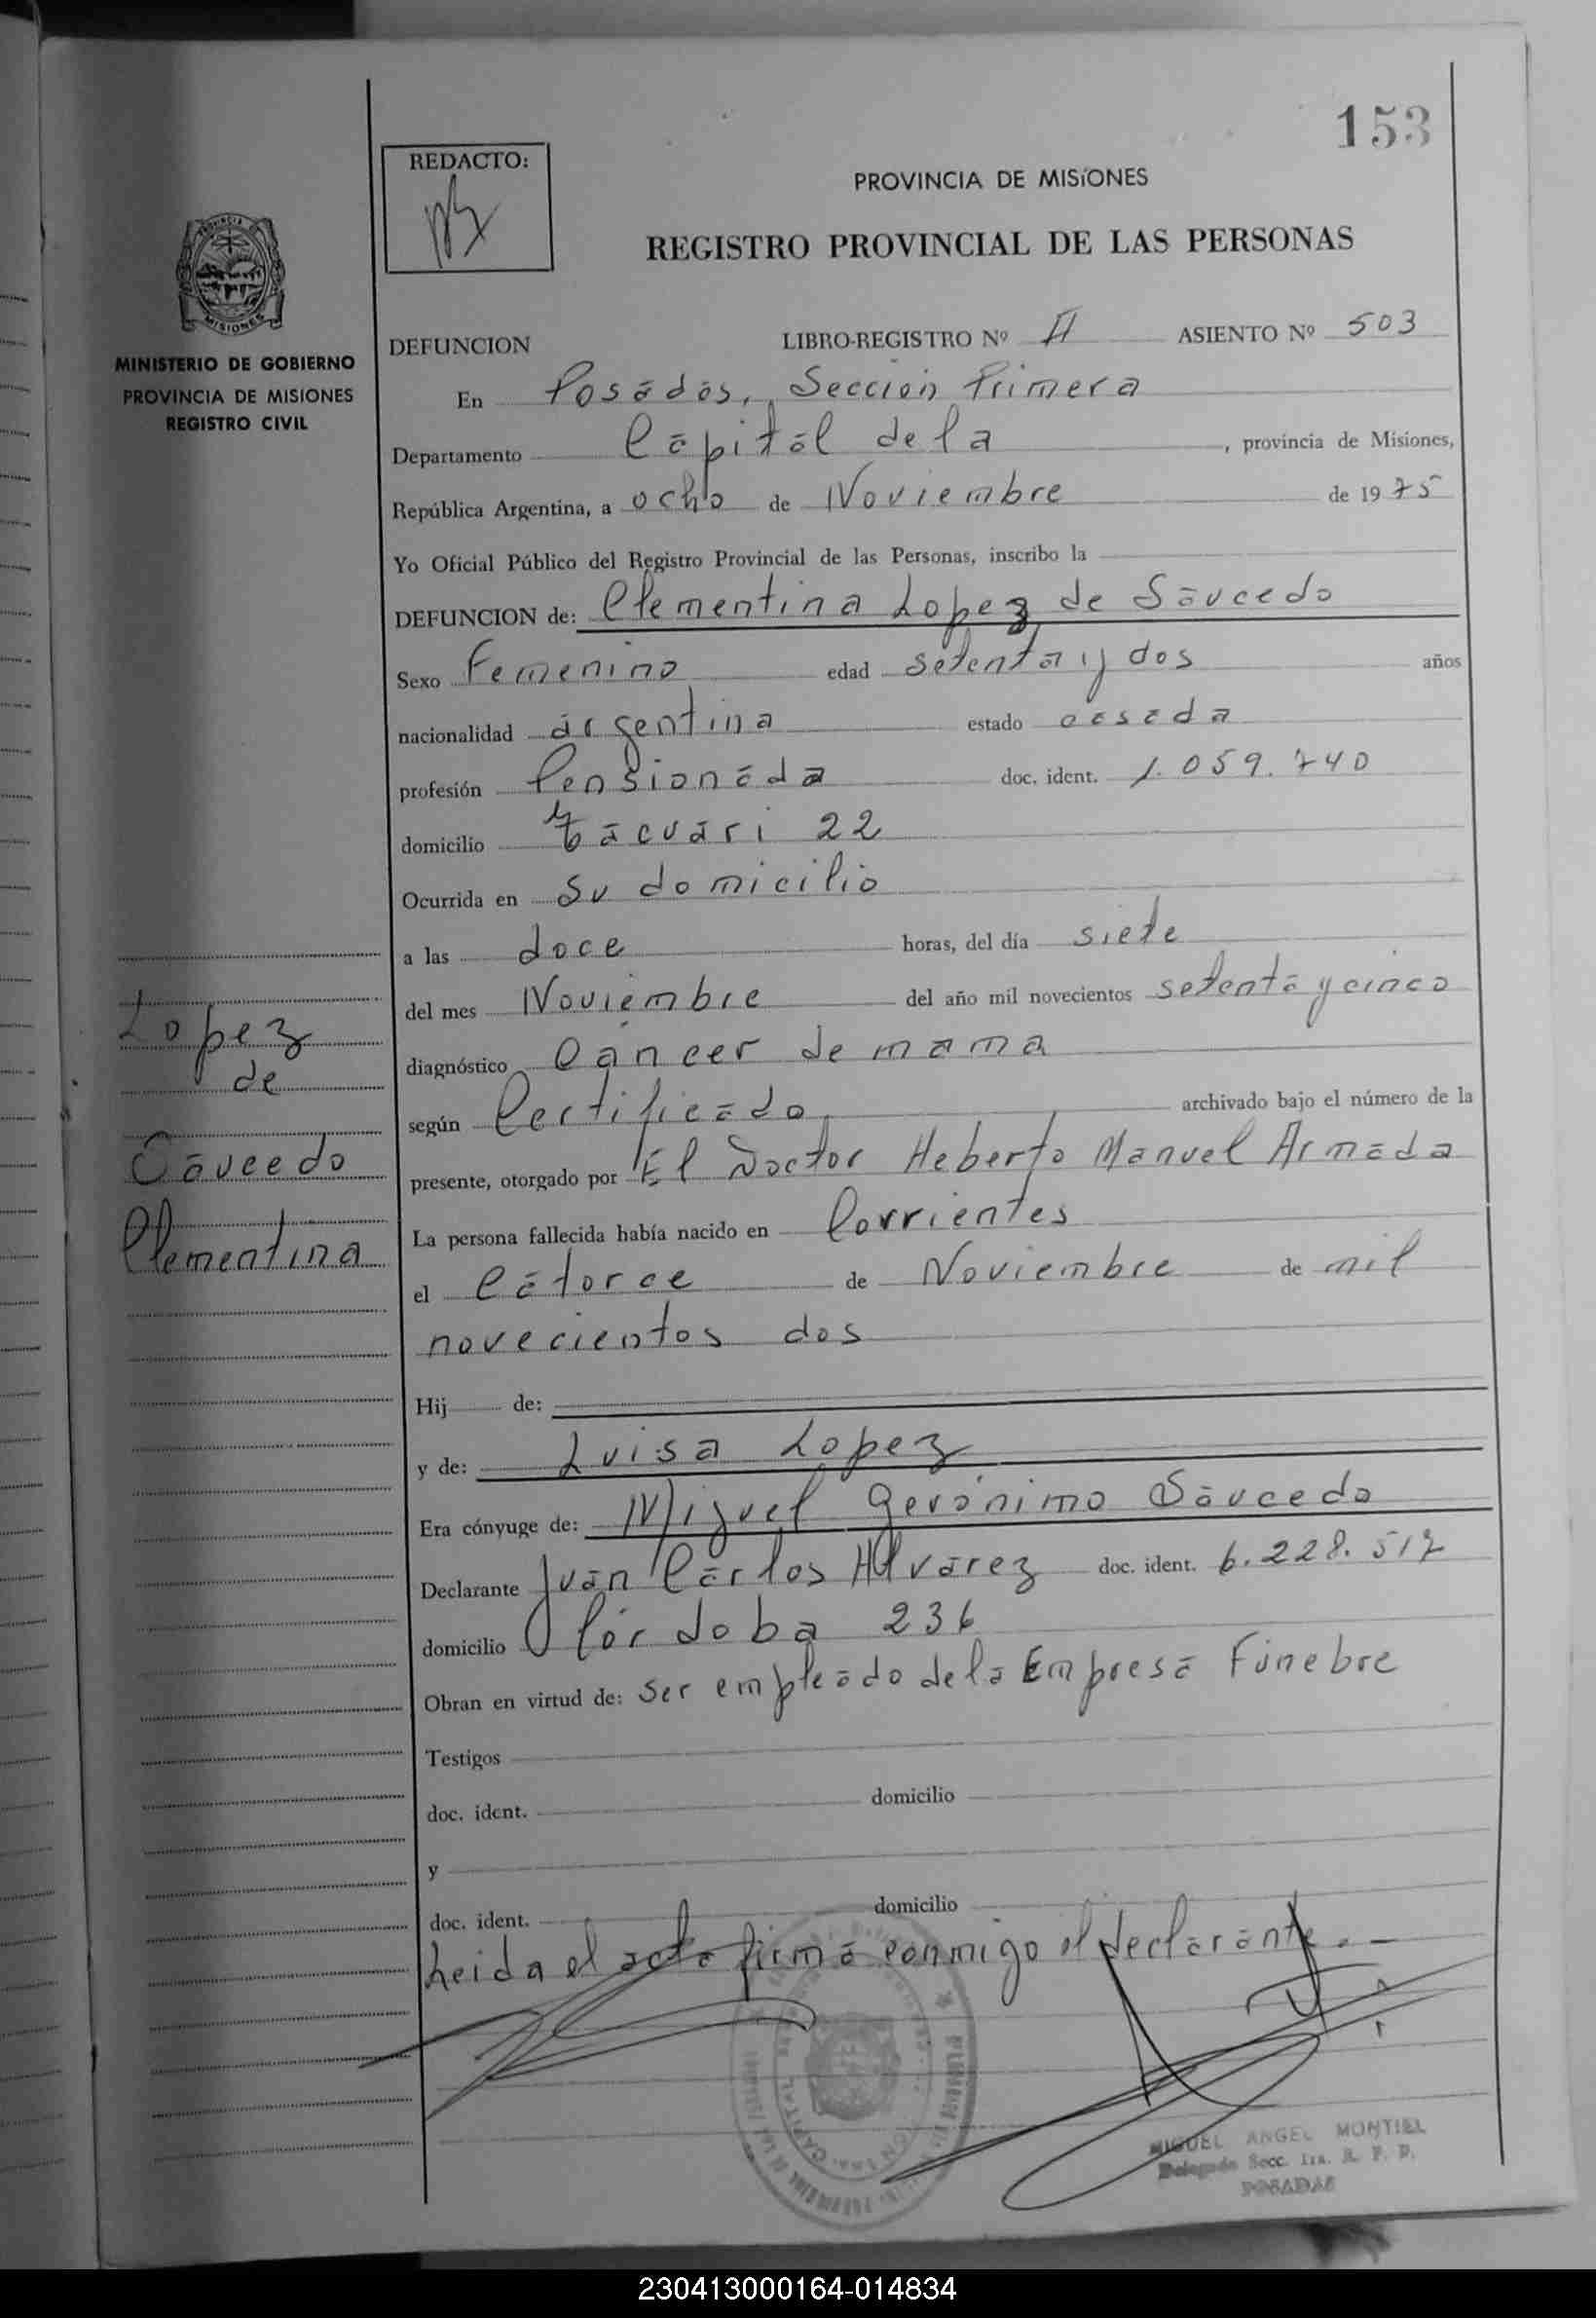 153
REDACTO:
PROVINCIA DE MISIONES
REGISTRO PROVINCIAL DE LAS PERSONAS
PROVINCIA
MISIONES
MINISTERIO DE GOBIERNO
PROVINCIA DE MISIONES
REGISTRO CIVIL
DEFUNCION LIBRO-REGISTRO Nº II ASIENTO Nº 503
En Posadas, Sección Primera
Departamento Capital de la , provincia de Misiones,
República Argentina, a ocho de Noviembre de 1975
Yo Oficial Público del Registro Provincial de las Personas, inscribo la
DEFUNCION de: Clementina Lopez de Saucedo
Sexo Femenino edad setenta y dos años
nacionalidad argentina estado casada
profesión Pensionada doc. ident. 1.059.740
domicilio Tacuari 22
Ocurrida en su domicilio
a las doce horas, del día siete
del mes Noviembre del año mil novecientos setenta y cinco
diagnóstico Cáncer de mama
según Certificado archivado bajo el número de la
presente, otorgado por El Doctor Heberto Manuel Armada
La persona fallecida había nacido en Corrientes
el Catorce de Noviembre de mil
novecientos dos
Hij de:
y de: Luisa Lopez
Era cónyuge de: Miguel Gerónimo Saucedo
Declarante Juan Carlos Alvarez doc. ident. 6.228.517
domicilio Córdoba 236
Obran en virtud de: ser empleado de la Empresa Fúnebre
Testigos
doc. ident. domicilio
y
doc. ident. domicilio
Leida el acta firma conmigo el declarante.-
Lopez
de
Saucedo
Clementina
MIGUEL ANGEL MONTIEL
Delegado Secc. 1ra. R. P. P.
POSADAS
230413000164-014834